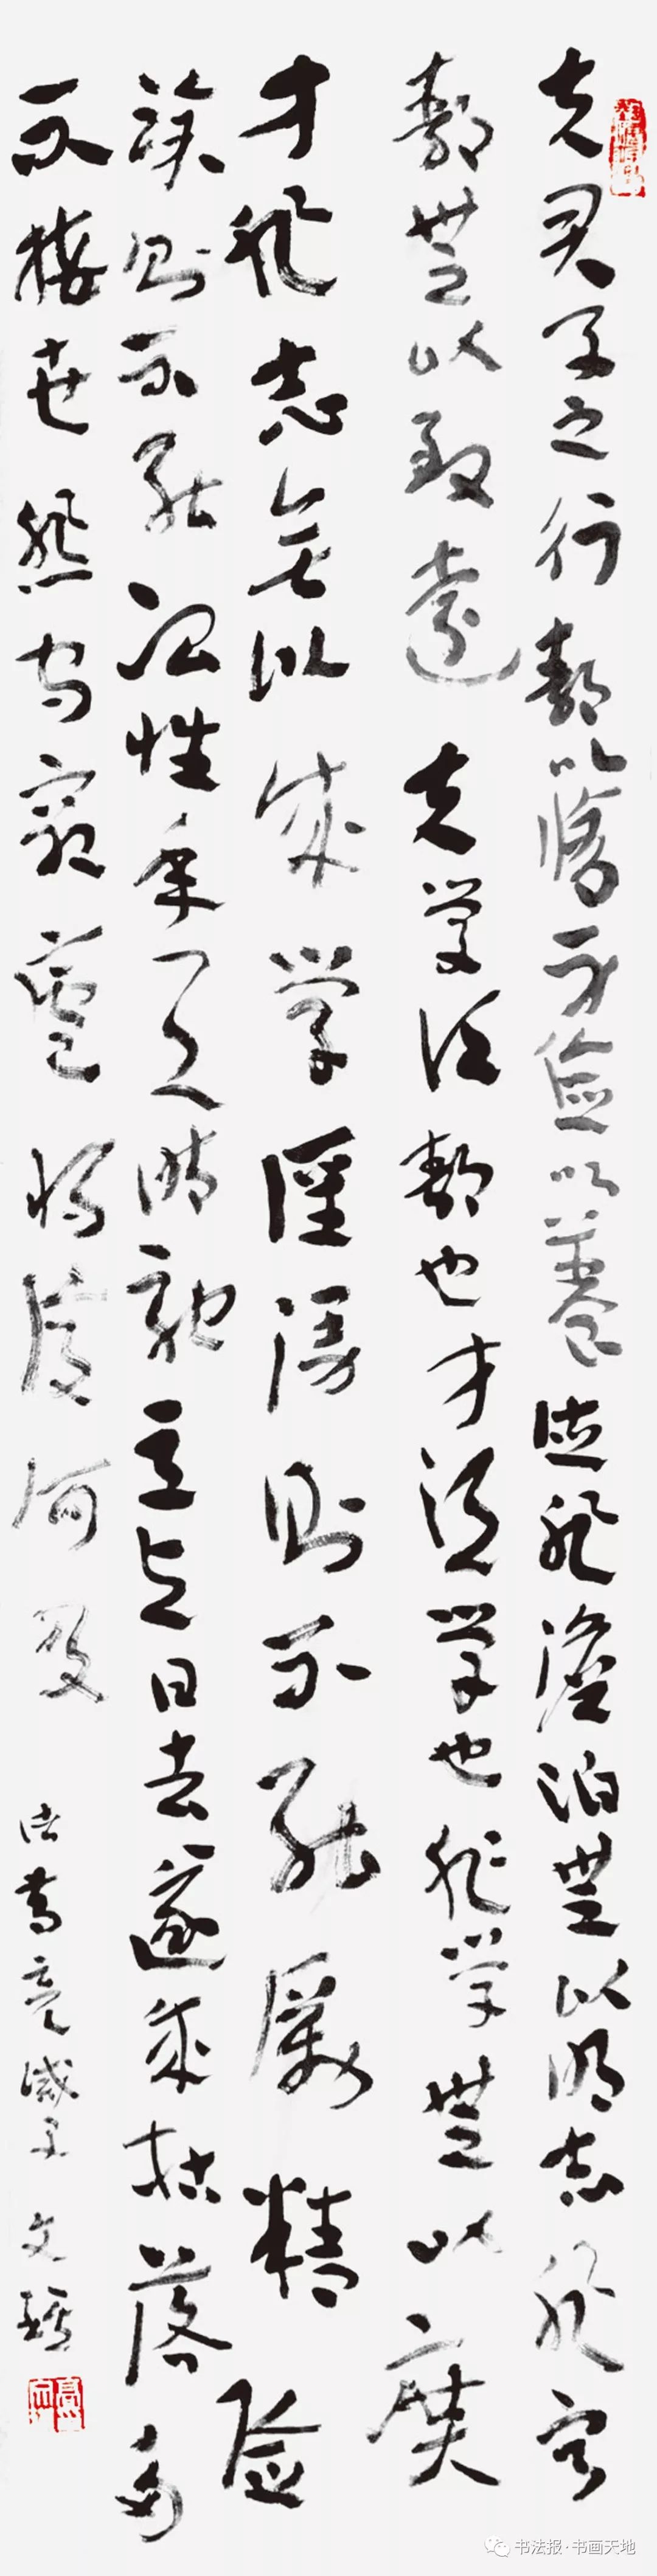 夫君子之行静以脩身俭以养德非澹泊无以明志非宁
静无以致远夫学须静也才须学也非学无以广
才非志无以成学淫漫则不能厉精险
躁则不能冶性年与时驰意与日去遂成枯落多
不接世悲守穷庐将复何及
诸葛亮诫子文
书法报·书画天地